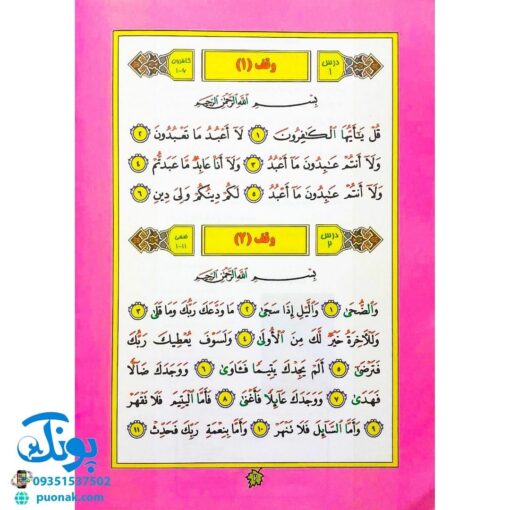 درس ۱
وقف (۱)
کافرون ۱-۶
بِسْمِ اللَّهِ الرَّحْمٰنِ الرَّحِيمِ
قُلْ يَٰٓأَيُّهَا الْكَٰفِرُونَ ۱ لَآ أَعْبُدُ مَا تَعْبُدُونَ ۲
وَلَآ أَنتُمْ عَٰبِدُونَ مَآ أَعْبُدُ ۳ وَلَآ أَنَا عَابِدٌ مَا عَبَدتُّمْ ۴
وَلَآ أَنتُمْ عَٰبِدُونَ مَآ أَعْبُدُ ۵ لَكُمْ دِينُكُمْ وَلِيَ دِينِ ۶
درس ۲
وقف (۲)
ضحی ۱-۱۱
بِسْمِ اللَّهِ الرَّحْمٰنِ الرَّحِيمِ
وَالضُّحَىٰ ۱ وَالَّيْلِ إِذَا سَجَىٰ ۲ مَا وَدَّعَكَ رَبُّكَ وَمَا قَلَىٰ ۳
وَلَلْآخِرَةُ خَيْرٌ لَّكَ مِنَ الْأُولَىٰ ۴ وَلَسَوْفَ يُعْطِيكَ رَبُّكَ
فَتَرْضَىٰ ۵ أَلَمْ يَجِدْكَ يَتِيمًا فَـَٔاوَىٰ ۶ وَوَجَدَكَ ضَآلًّا
فَهَدَىٰ ۷ وَوَجَدَكَ عَآئِلًا فَأَغْنَىٰ ۸ فَأَمَّا الْيَتِيمَ فَلَا تَقْهَرْ
۹ وَأَمَّا السَّآئِلَ فَلَا تَنْهَرْ ۱۰ وَأَمَّا بِنِعْمَةِ رَبِّكَ فَحَدِّثْ ۱۱
پونک
09351537502
puonak.com